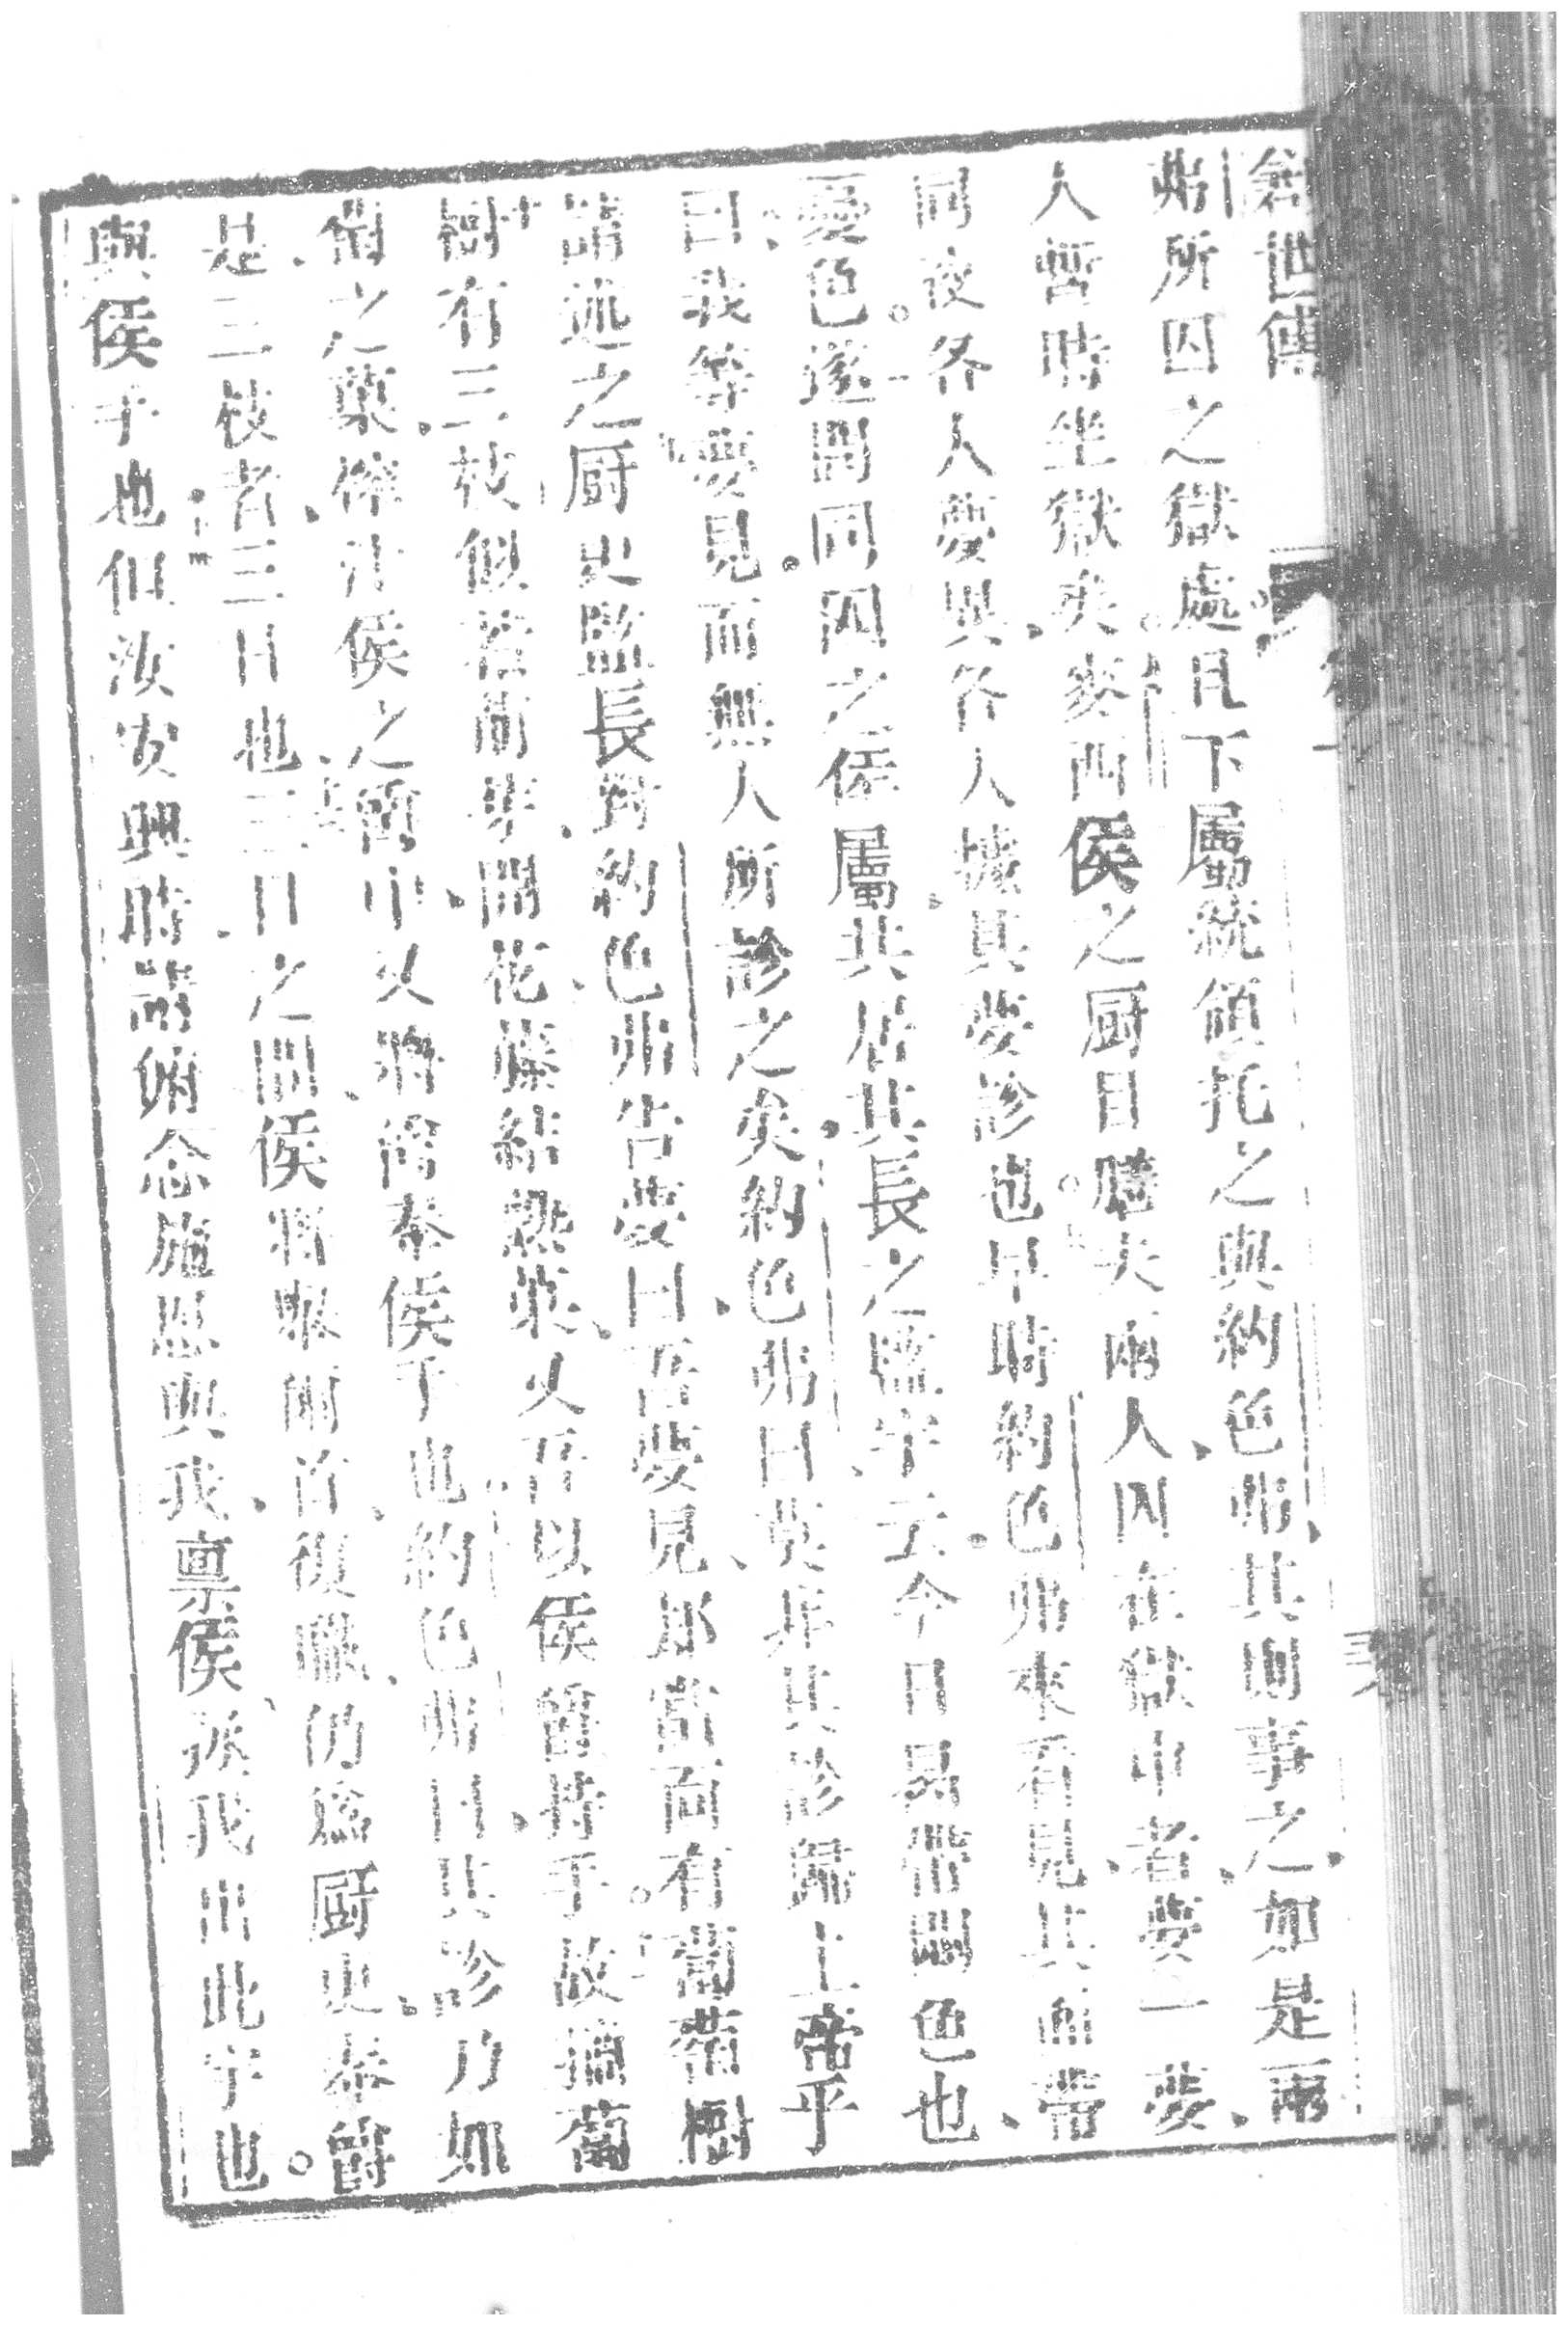 創世傳
弗所囚之獄處且下屬統領托之與約色弗其則事之如是兩
人暫時坐獄矣麥西侯之厨目膳夫兩人囚在獄中者夢一夢
同夜各人夢與各人據其夢診也早時約色弗來看見其面帶
憂色遂問同囚之侯屬共居其長之監牢云今日曷帶幽色也
曰我等夢見而無人所診之矣約色弗曰莫非其診歸上帝乎
請述之厨史監長對約色弗告夢曰吾夢見都當面有葡萄樹
樹有三枝似若萌芽開花蘂結熟菓又吾以侯爵持手故摘葡
萄之菓榨汁侯之爵中又將爵奉侯手也約色弗曰其診乃如
是三枝者三日也三日之間侯將擧爾首復職仍爲厨史奉爵
與侯手也但汝安興時請俯念施恩與我禀侯救我出此牢也